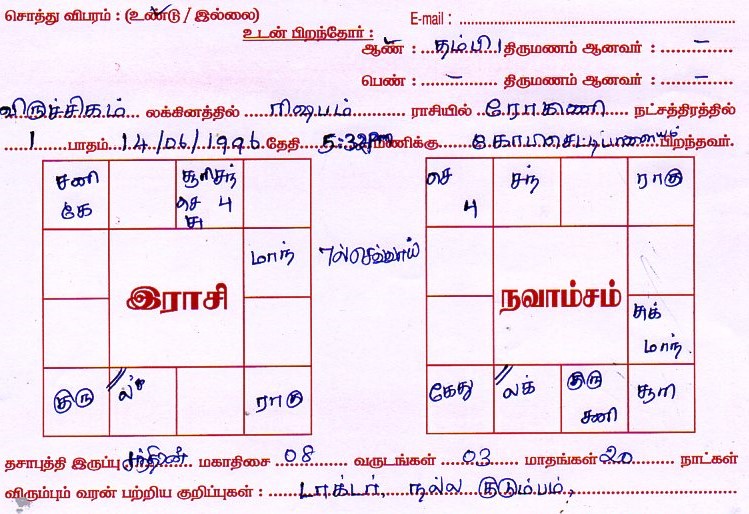 சொத்து விபரம் : (உண்டு / இல்லை)
E-mail :
உடன் பிறந்தோர் :
ஆண் : தம்பி 1 திருமணம் ஆனவர் : –
பெண் : – திருமணம் ஆனவர் : –
விருச்சிகம் லக்கினத்தில் ரிஷபம் ராசியில் ரோகிணி நட்சத்திரத்தில்
1 பாதம் 14/06/1996 தேதி 5:32 மணிக்கு கோபிசெட்டிபாளையம் பிறந்தவர்.
சனி
கே
சூரி சந்
செ பு
சு
மாந்
இராசி
குரு
ல
ராகு
7ல் செவ்வாய்
செ
பு
சந்
ராகு
நவாம்சம்
சுக்
மாந்
கேது
லக்
குரு
சனி
சூரி
தசாபுத்தி இருப்பு சந்திரன் மகாதிசை 08 வருடங்கள் 03 மாதங்கள் 20 நாட்கள்
விரும்பும் வரன் பற்றிய குறிப்புகள் : டாக்டர், நல்ல குடும்பம்,